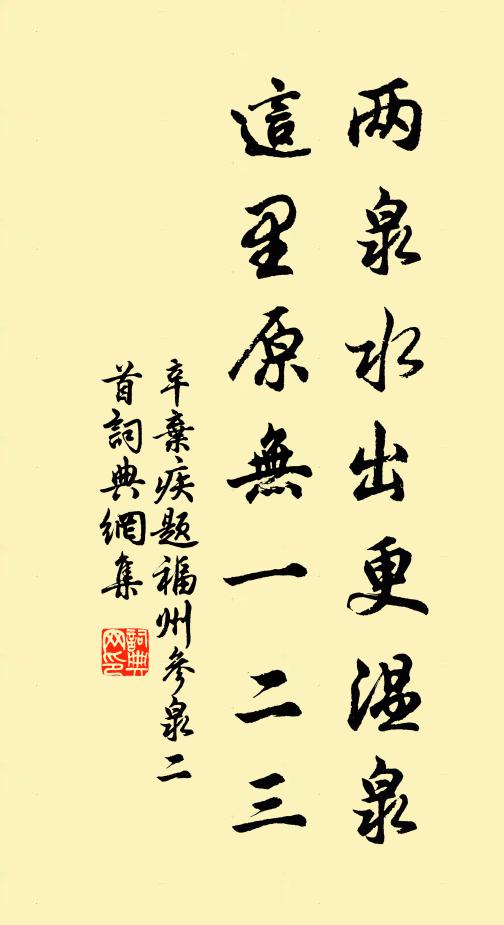 两泉水出更温泉
這里原無一二三
辛棄疾题福州參泉二
首詞典網集
詞典
网印